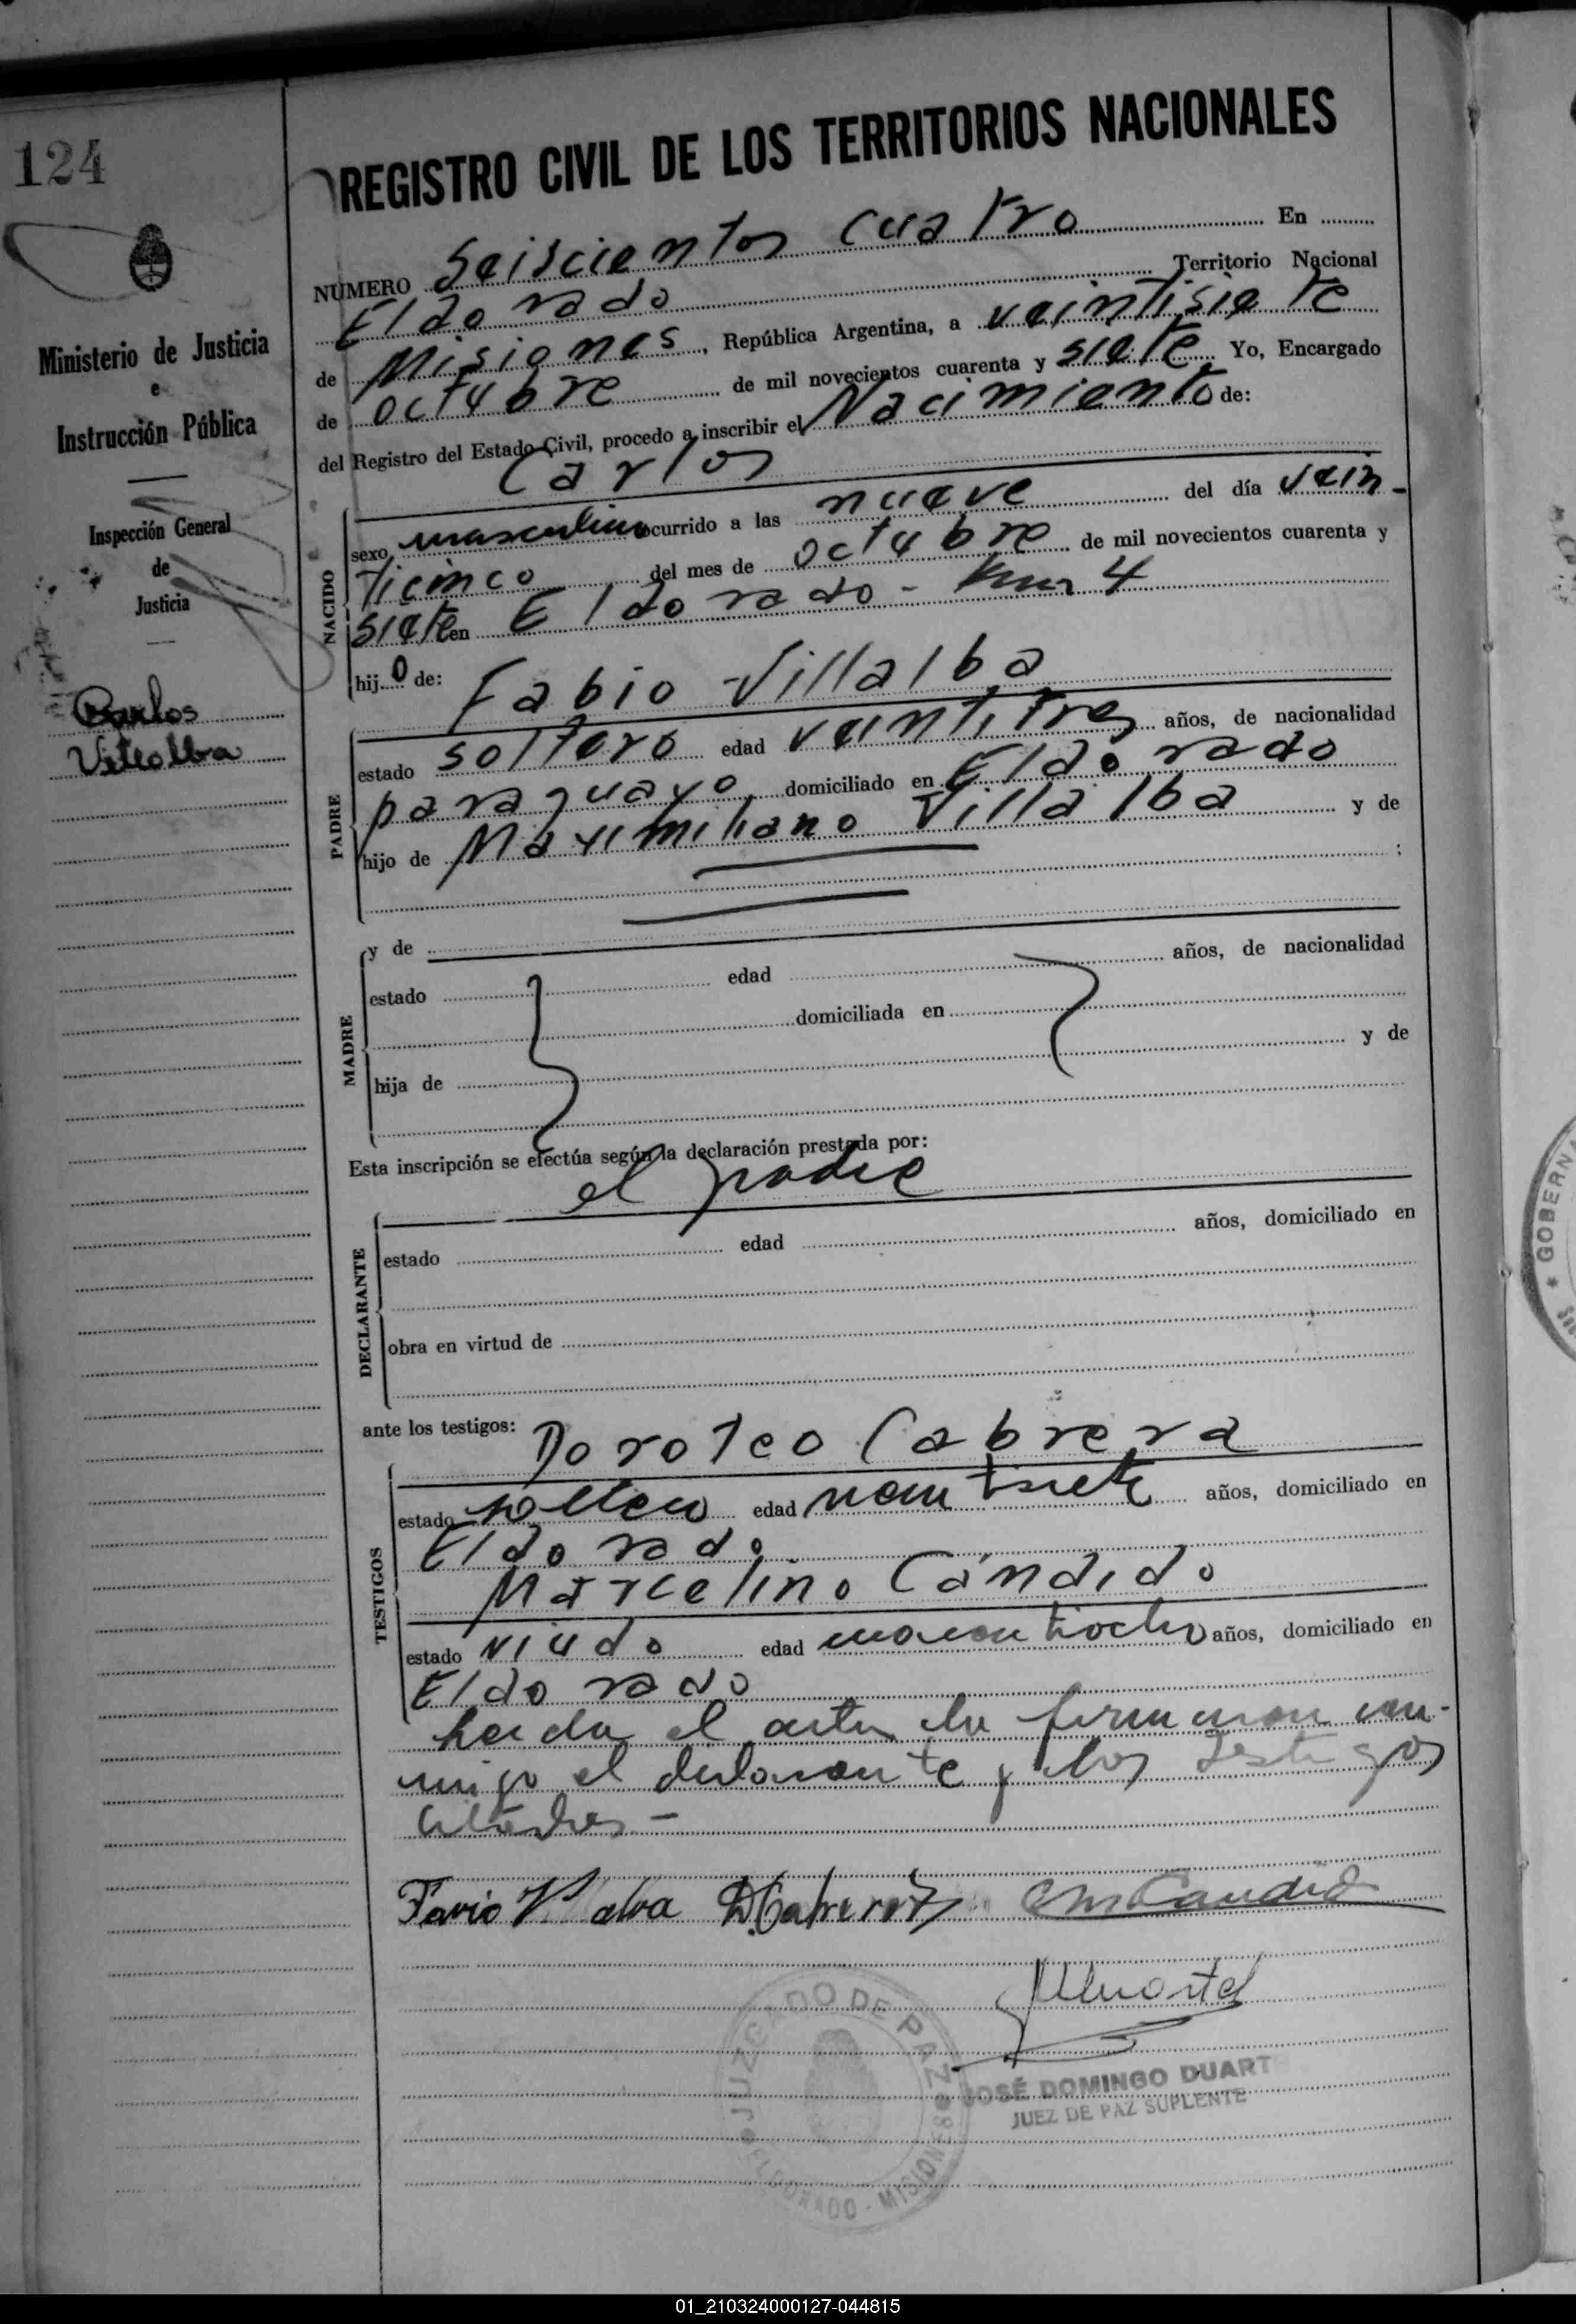 124
REGISTRO CIVIL DE LOS TERRITORIOS NACIONALES
NUMERO Seiscientos cuatro En
Eldorado Territorio Nacional
de Misiones, República Argentina, a veintisiete
de octubre de mil novecientos cuarenta y siete Yo, Encargado
del Registro del Estado Civil, procedo a inscribir el Nacimiento de:
Carlos
Ministerio de Justicia
e
Instrucción Pública
Inspección General
de
Justicia
Carlos
Villalba
NACIDO
sexo masculino ocurrido a las nueve del día vein-
ticinco del mes de octubre de mil novecientos cuarenta y
siete en Eldorado - Km 4
hijo de: Fabio Villalba
PADRE
estado soltero edad veintitres años, de nacionalidad
paraguayo domiciliado en Eldorado
hijo de Maximiliano Villalba y de
;
MADRE
y de
estado edad años, de nacionalidad
domiciliada en
hija de y de
Esta inscripción se efectúa según la declaración prestada por:
el padre
DECLARANTE
estado edad años, domiciliado en
obra en virtud de
ante los testigos: Doroteo Cabrera
TESTIGOS
estado soltero edad años, domiciliado en
Eldorado
Marcelino Cándido
estado viudo edad años, domiciliado en
Eldorado
Leída el acta la firmaron con-
migo el declarante y los testigos
citados -
Favio Villalva D. Cabrera M Candido
JUZGADO DE PAZ
ELDORADO - MISIONES
JOSÉ DOMINGO DUART
JUEZ DE PAZ SUPLENTE
GOBERNA
01_210324000127-044815